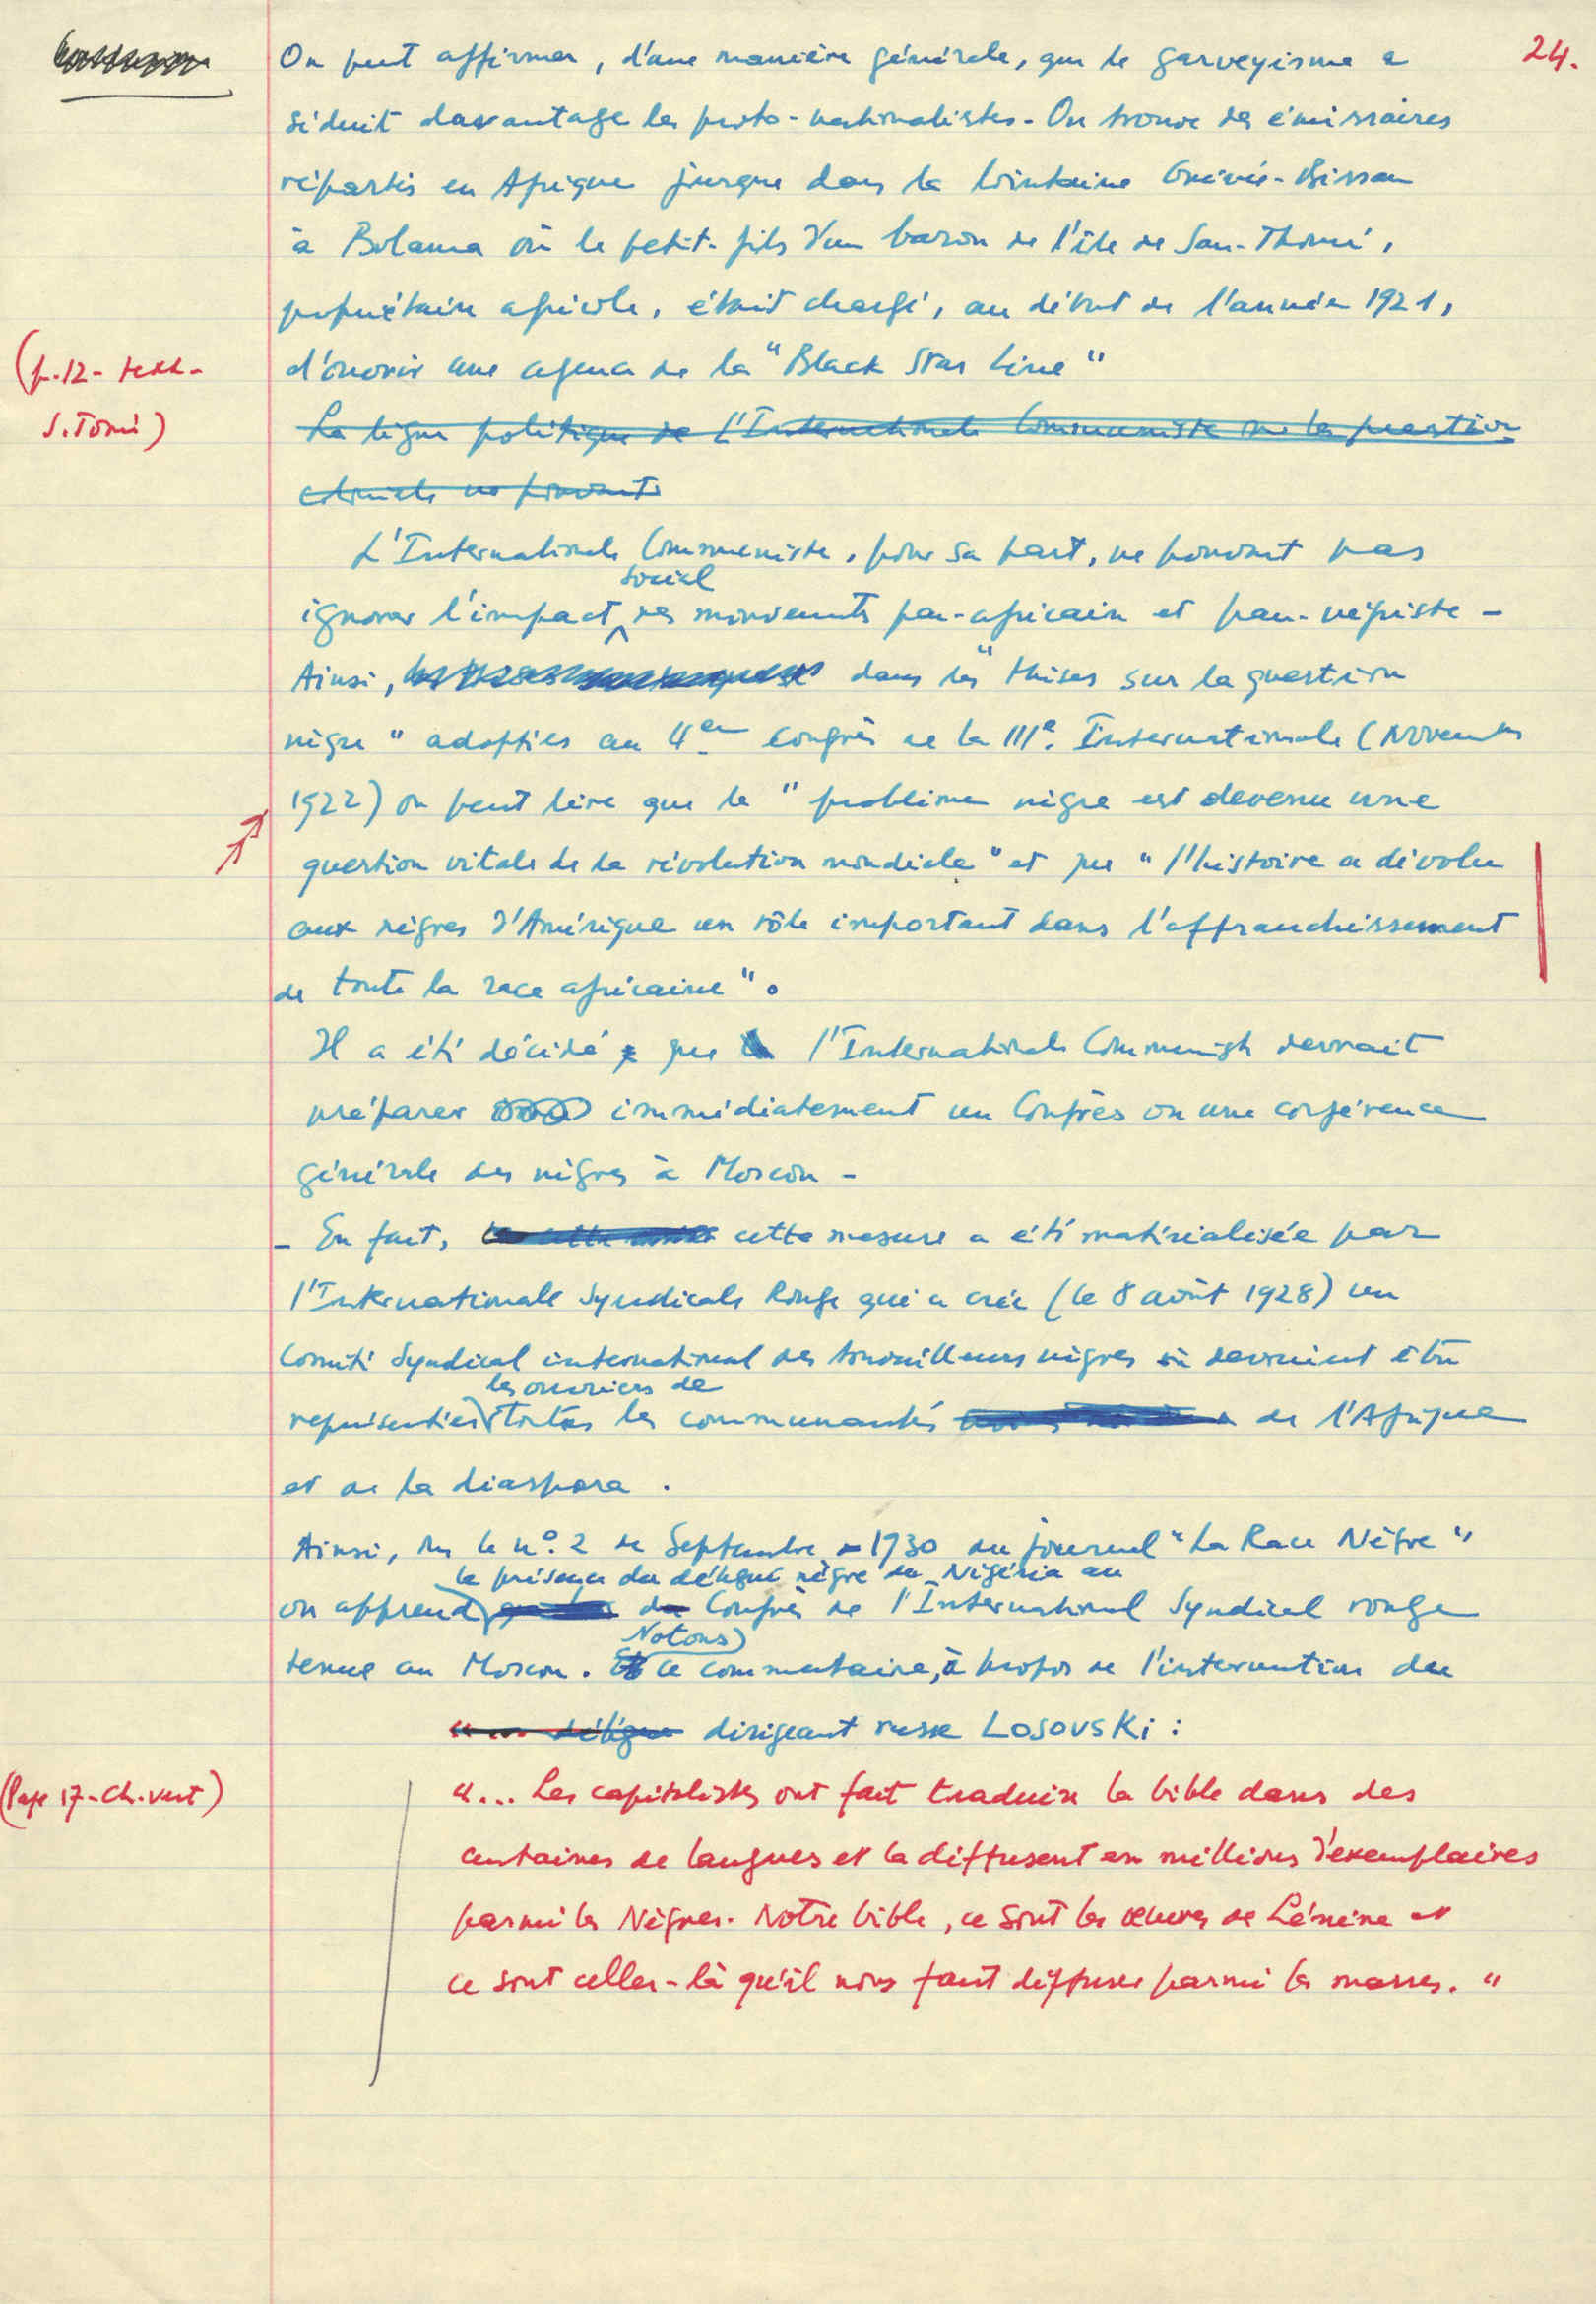 24.
On peut affirmer, d'une manière générale, que le garveyisme a
séduit davantage les proto-nationalistes. On trouve des émissaires
répartis en Afrique jusque dans la lointaine Guinée-Bissau
à Bolama où le petit-fils d'un baron de l'île de San-Thomé,
propriétaire agricole, était chargé, au début de l'année 1921,
d'ouvrir une agence de la "Black Star Line"
(p.12- text-
S. Tomé)
La ligne politique de L'Internationale Communiste sur la question
coloniale ne pouvait
L'Internationale Communiste, pour sa part, ne pouvait pas
social
ignorer l'impact des mouvements pan-africain et pan-négriste -
Ainsi, dans les "thèses sur la question
nègre" adoptées au 4em Congrès de la IIIe. Internationale (Novembre
1922) on peut lire que le "problème nègre est devenu une
question vitale de la révolution mondiale" et que "l'histoire a dévolu
aux nègres d'Amérique un rôle important dans l'affranchissement
de toute la race africaine".
Il a été décidé que l'Internationale Communiste devrait
préparer immédiatement un Congrès ou une conférence
générale des nègres à Moscou -
- En fait, cette mesure a été matérialisée par
l'Internationale Syndicale Rouge qui a crée (le 8 août 1928) un
Comité Syndical international des travailleurs nègres où devraient être
les ouvriers de
représentées toutes les communautés de l'Afrique
et de la diaspora.
Ainsi, sur le nº.2 de Septembre 1930 du journal "La Race Nègre"
la présence du délégué nègre du Nigéria au
on apprend du Congrès de l'International Syndical rouge
Notons
tenue au Moscou. ce commentaire, à propos de l'intervention du
délégué dirigeant russe LOSOVSKi :
(Page 17-Ch.vert)
"... Les capitalistes ont fait traduire la bible dans des
centaines de langues et la diffusent en millions d'exemplaires
parmi les Nègres. Notre bible, ce sont les œuvres de Lénine et
ce sont celles-là qu'il nous faut diffuser parmi les masses."